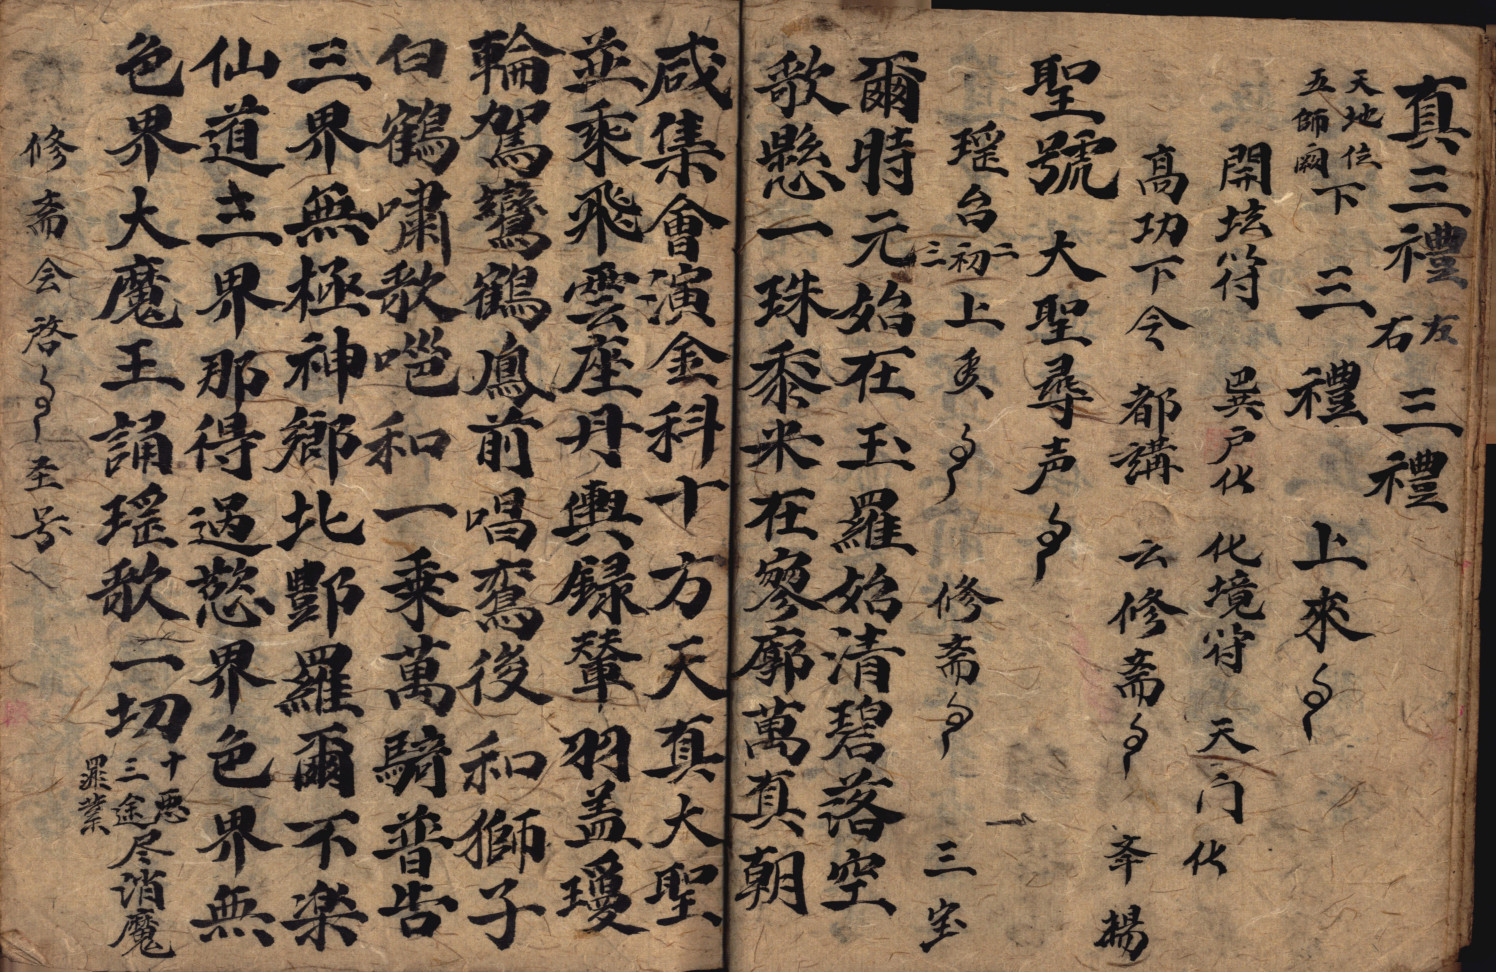 真三禮 左右 三禮
天地位 五師廟 下 三禮 上來
開坛符 巽户化 化境符 天门化
高功下令 都講 云修斋 夅楊
聖號 大聖尋声
瑶台 二初三 上 修斋 三宝
爾時元始在玉羅始清碧落空
歌懸一珠黍米在寥廓萬真朝
咸集會演金科十方天真大聖
並乘飛雲座丹輿録輦羽盖瓊
輪駕鸞鶴鳳前唱鸾後和獅子
白鶴嘯歌嗈和一乗萬騎普告
三界無極神鄉北酆羅爾不楽
仙道主界那得過慾界色界無
色界大魔王誦瑶歌一切 十悪 三途 罪業 尽消魔
修斋会啓 圣号